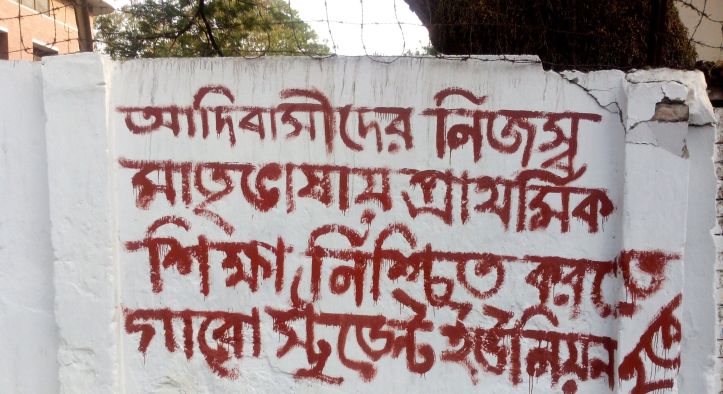 আদিবাসীদের নিজস্ব
মাতৃভাষায় প্রাথমিক
শিক্ষা নিশ্চিত করতে
গারো স্টুডেন্ট ইউনিয়ন